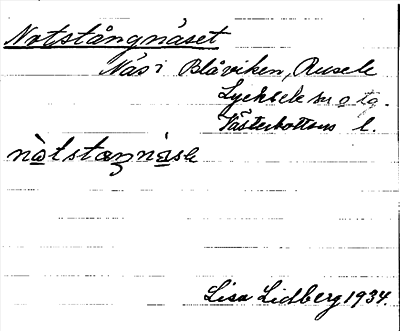 Notstångnäset
Näs i Blåviken, Rusele
Lycksele sn o tg.
Västerbottens l.
Lisa Lidberg 1934.